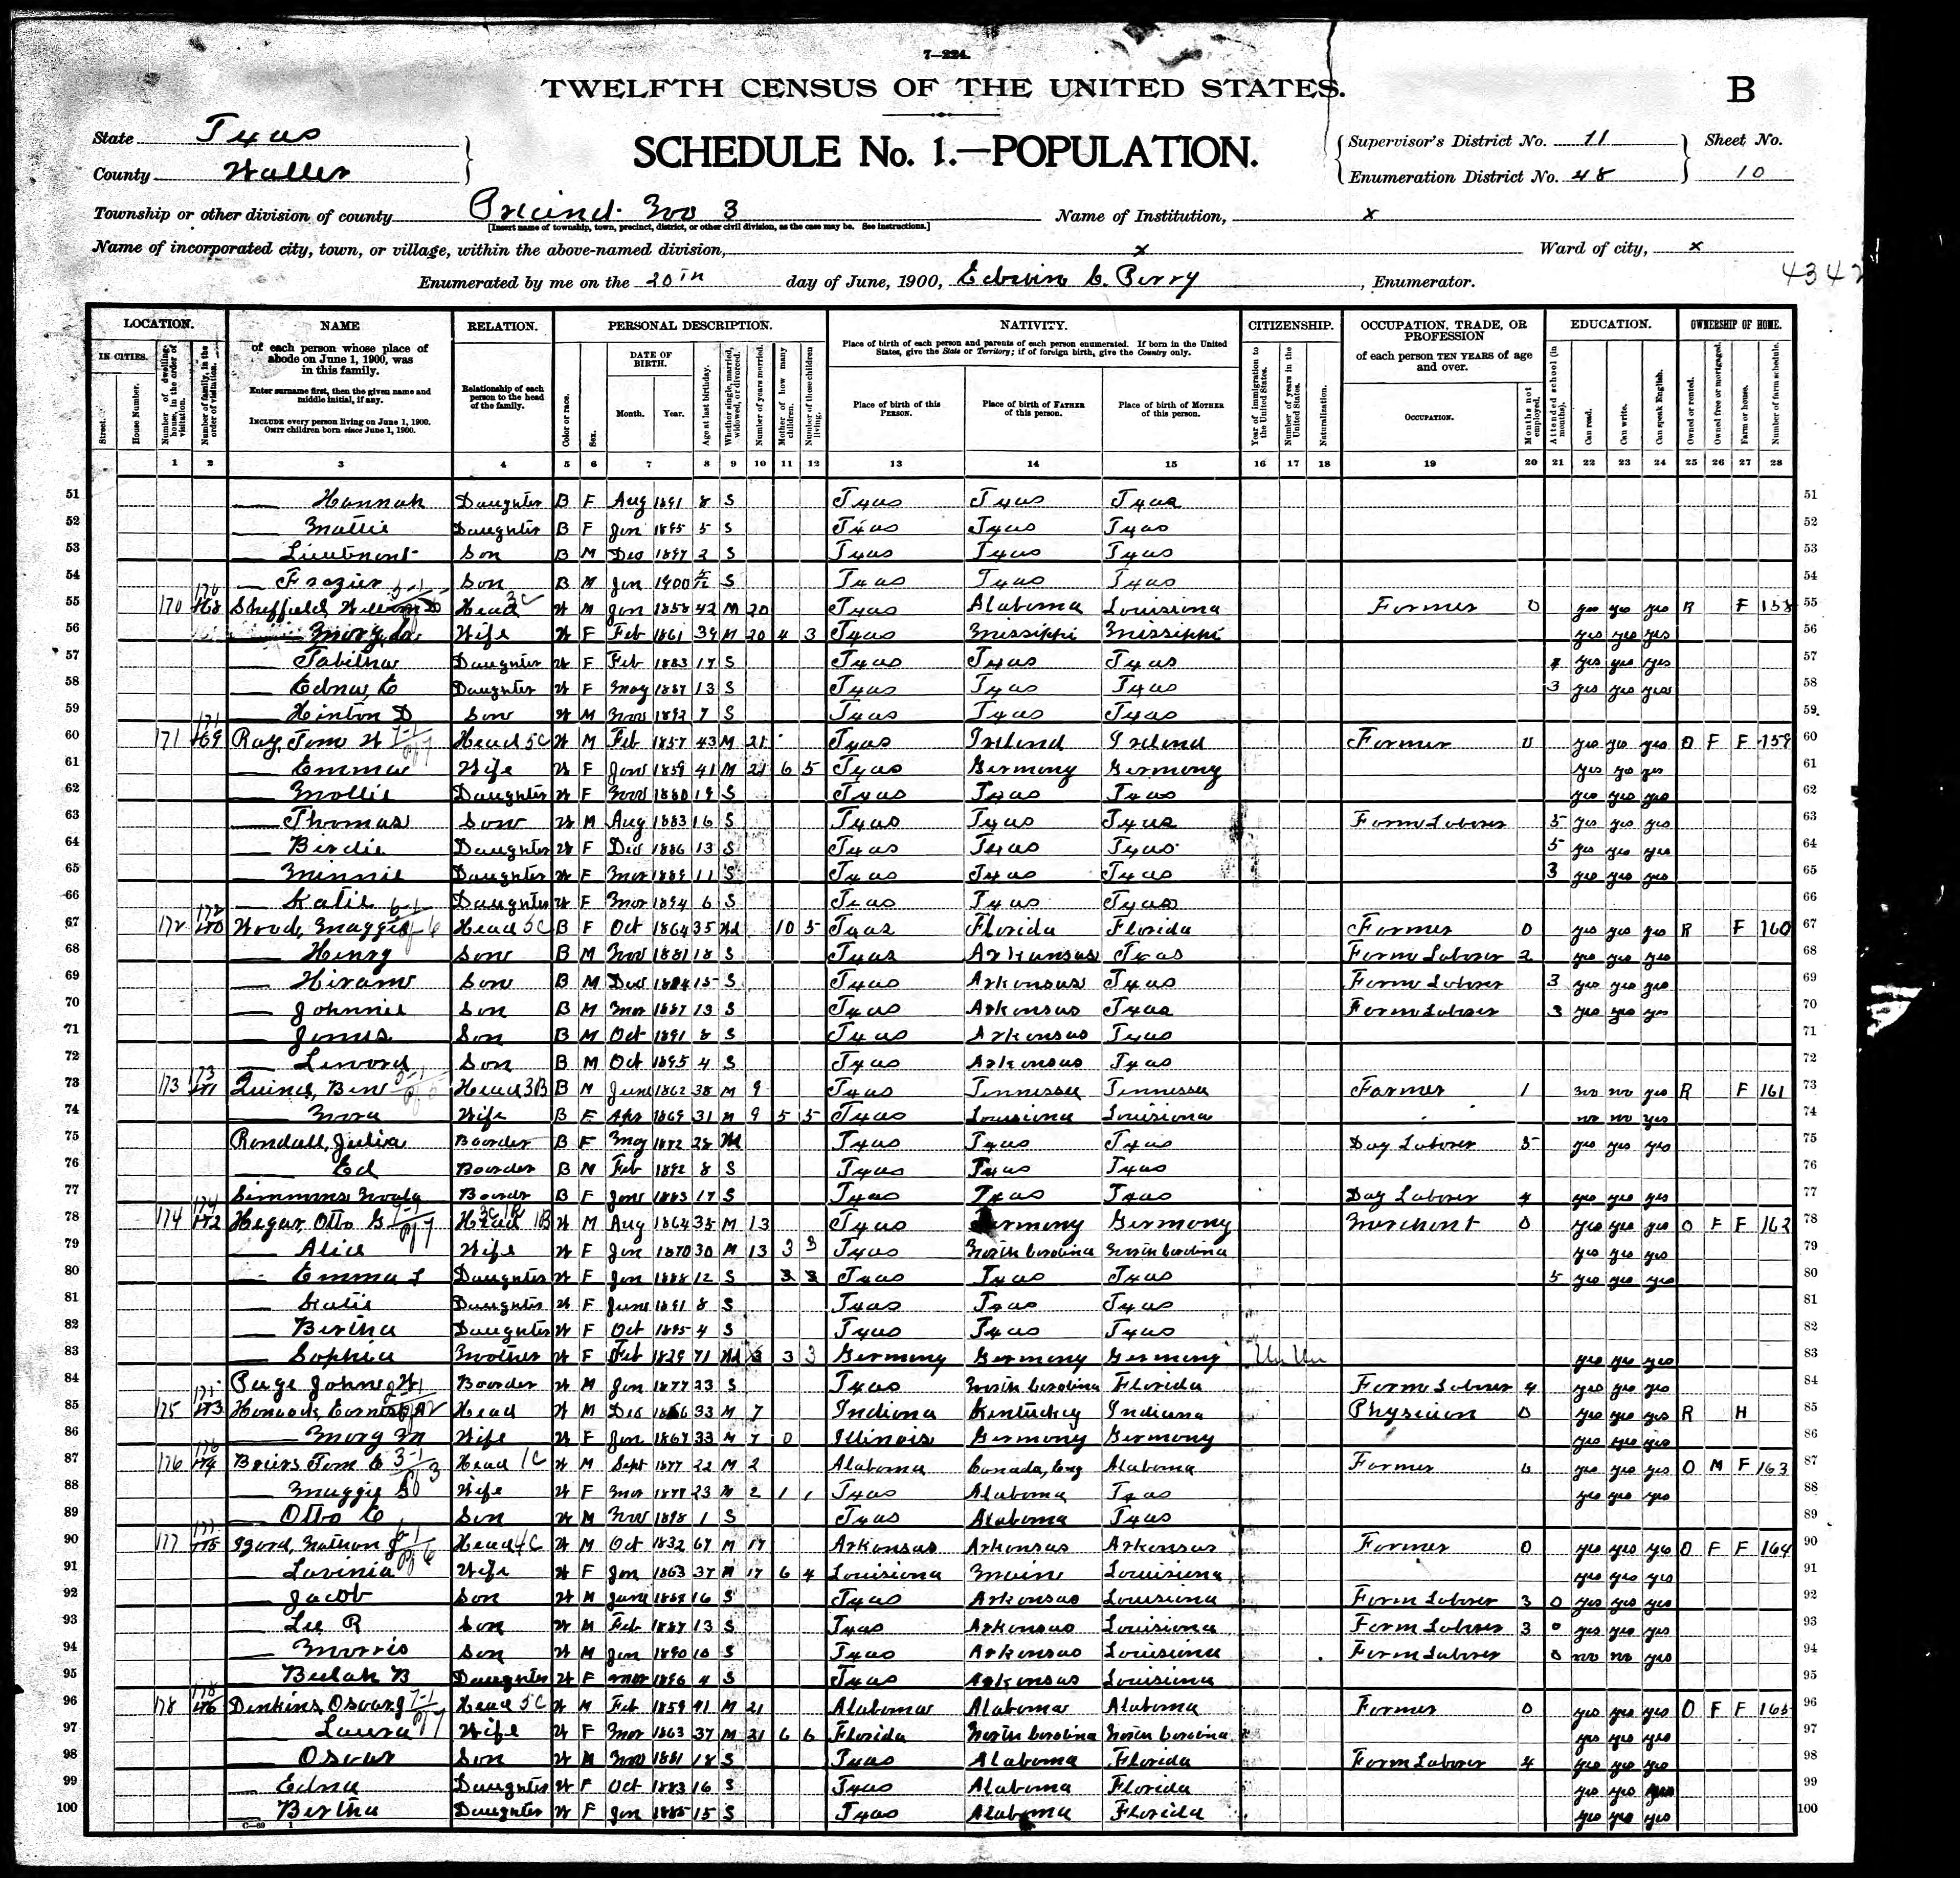 7—224.
TWELFTH CENSUS OF THE UNITED STATES.
B
State Texas
County Waller
SCHEDULE No. 1.—POPULATION.
Supervisor's District No. 11
Enumeration District No. 48
Sheet No.
10
Township or other division of county Precinct No 3
[Insert name of township, town, precinct, district, or other civil division, as the case may be. See instructions.]
Name of Institution, x
Name of incorporated city, town, or village, within the above-named division, x
Ward of city, x
Enumerated by me on the 20th day of June, 1900, Edwin C. Perry, Enumerator.
4342
LOCATION. NAME RELATION. PERSONAL DESCRIPTION. NATIVITY. CITIZENSHIP. OCCUPATION, TRADE, OR PROFESSION EDUCATION. OWNERSHIP OF HOME.
IN CITIES.
Street.
House Number.
Number of dwelling-house, in the order of visitation.
Number of family, in the order of visitation.
of each person whose place of abode on June 1, 1900, was in this family.
Enter surname first, then the given name and middle initial, if any.
INCLUDE every person living on June 1, 1900. OMIT children born since June 1, 1900.
Relationship of each person to the head of the family.
Color or race.
Sex.
DATE OF BIRTH.
Month. Year.
Age at last birthday.
Whether single, married, widowed, or divorced.
Number of years married.
Mother of how many children.
Number of these children living.
Place of birth of each person and parents of each person enumerated. If born in the United States, give the State or Territory; if of foreign birth, give the Country only.
Place of birth of this PERSON.
Place of birth of FATHER of this person.
Place of birth of MOTHER of this person.
Year of immigration to the United States.
Number of years in the United States.
Naturalization.
of each person TEN YEARS of age and over.
OCCUPATION.
Months not employed.
Attended school (in months).
Can read.
Can write.
Can speak English.
Owned or rented.
Owned free or mortgaged.
Farm or house.
Number of farm schedule.
1 2 3 4 5 6 7 8 9 10 11 12 13 14 15 16 17 18 19 20 21 22 23 24 25 26 27 28
51 — Hannah Daughter B F Aug 1891 8 S Texas Texas Texas 51
52 — Mattie Daughter B F Jan 1895 5 S Texas Texas Texas 52
53 — Lieutenant Son B M Dec 1897 2 S Texas Texas Texas 53
54 — Frazier Son B M Jan 1900 S Texas Texas Texas 54
55 170 Sheffield Head W M Jan 1858 42 M 20 Texas Alabama Louisiana Farmer 0 yes yes yes R F 158 55
56 — Wife W F Feb 1861 39 M 20 4 3 Texas Missippi Missippi yes yes yes 56
57 — Tabitha Daughter W F Feb 1883 17 S Texas Texas Texas yes yes yes 57
58 — Edna E Daughter W F May 1887 13 S Texas Texas Texas 3 yes yes yes 58
59 — Hinton D Son W M Nov 1892 7 S Texas Texas Texas 59
60 171 Ray, Tom W Head 5C W M Feb 1857 43 M 21 Texas Ireland Ireland Farmer 0 yes yes yes O F F 159 60
61 — Emma Wife W F Jan 1859 41 M 21 6 5 Texas Germany Germany yes yes yes 61
62 — Mollie Daughter W F Nov 1880 19 S Texas Texas Texas yes yes yes 62
63 — Thomas Son W M Aug 1883 16 S Texas Texas Texas Farm Laborer 5 yes yes yes 63
64 — Birdie Daughter W F Dec 1886 13 S Texas Texas Texas 5 yes yes yes 64
65 — Minnie Daughter W F Mar 1889 11 S Texas Texas Texas 3 yes yes yes 65
66 — Katie Daughter W F Mar 1894 6 S Texas Texas Texas 66
67 172 Wood, Maggie Head 5C B F Oct 1864 35 Wd 10 5 Texas Florida Florida Farmer 0 yes yes yes R F 160 67
68 — Henry Son B M Nov 1881 18 S Texas Arkansas Texas Farm Laborer 2 yes yes yes 68
69 — Hiram Son B M Dec 1884 15 S Texas Arkansas Texas Farm Laborer 3 yes yes yes 69
70 — Johnnie Son B M Mar 1887 13 S Texas Arkansas Texas Farm Laborer 3 yes yes yes 70
71 — James Son B M Oct 1891 8 S Texas Arkansas Texas 71
72 — Son B M Oct 1895 4 S Texas Arkansas Texas 72
73 173 Ben Head 3B B M June 1862 38 M 9 Texas Tennessee Tennessee Farmer 1 no no yes R F 161 73
74 — Nora Wife B F Apr 1869 31 M 9 5 5 Texas Louisiana Louisiana no no yes 74
75 Randall, Julia Boarder B F May 1872 28 Wd Texas Texas Texas Day Laborer 5 yes yes yes 75
76 — Ed Boarder B M Feb 1892 8 S Texas Texas Texas 76
77 Simmons Boarder B F Jan 1883 17 S Texas Texas Texas Day Laborer 4 yes yes yes 77
78 174 Hegar, Otto G Head W M Aug 1864 35 M 13 Texas Germany Germany Merchant 0 yes yes yes O F F 162 78
79 — Alice Wife W F Jan 1870 30 M 13 3 3 Texas North Carolina North Carolina yes yes yes 79
80 — Emma L Daughter W F Jan 1888 12 S Texas Texas Texas 5 yes yes yes 80
81 — Katie Daughter W F June 1891 8 S Texas Texas Texas 81
82 — Bertha Daughter W F Oct 1895 4 S Texas Texas Texas 82
83 — Sophia Mother W F Feb 1829 71 Wd 3 3 Germany Germany Germany Un Un yes yes yes 83
84 Page John W Boarder W M Jan 1877 23 S Texas North Carolina Florida Farm Laborer 4 yes yes yes 84
85 175 Hancock, Head W M Dec 1866 33 M 7 Indiana Kentucky Indiana Physician 0 yes yes yes R H 85
86 — Mary M Wife W F Jan 1867 33 M 7 0 Illinois Germany Germany yes yes yes 86
87 176 Tom E Head 1C W M Sept 1877 22 M 2 Alabama Canada, Eng Alabama Farmer yes yes yes O M F 163 87
88 — Maggie Wife W F Mar 1877 23 M 2 1 1 Texas Alabama Texas yes yes yes 88
89 — Otto C Son W M Nov 1898 1 S Texas Alabama Texas 89
90 177 Izard, Nathan J Head 4C W M Oct 1832 67 M 17 Arkansas Arkansas Arkansas Farmer 0 yes yes yes O F F 164 90
91 — Lavinia Wife W F Jan 1863 37 M 17 6 4 Louisiana Maine Louisiana yes yes yes 91
92 — Jacob Son W M June 16 S Texas Arkansas Louisiana Farm Laborer 3 0 yes yes yes 92
93 — Lee R Son W M Feb 1887 13 S Texas Arkansas Louisiana Farm Laborer 3 0 yes yes yes 93
94 — Morris Son W M Jan 1890 10 S Texas Arkansas Louisiana Farm Laborer 0 no no yes 94
95 — Beulah B Daughter W F Mar 1896 4 S Texas Arkansas Louisiana 95
96 178 Denkins, Oscar J Head 5C W M Feb 1859 41 M 21 Alabama Alabama Alabama Farmer 0 yes yes yes O F F 165 96
97 — Laura Wife W F Mar 1863 37 M 21 6 6 Florida North Carolina North Carolina yes yes yes 97
98 — Oscar Son W M Nov 1881 18 S Texas Alabama Florida Farm Laborer 4 yes yes yes 98
99 — Edna Daughter W F Oct 1883 16 S Texas Alabama Florida yes yes yes 99
100 — Bertha Daughter W F Jan 1885 15 S Texas Alabama Florida yes yes yes 100